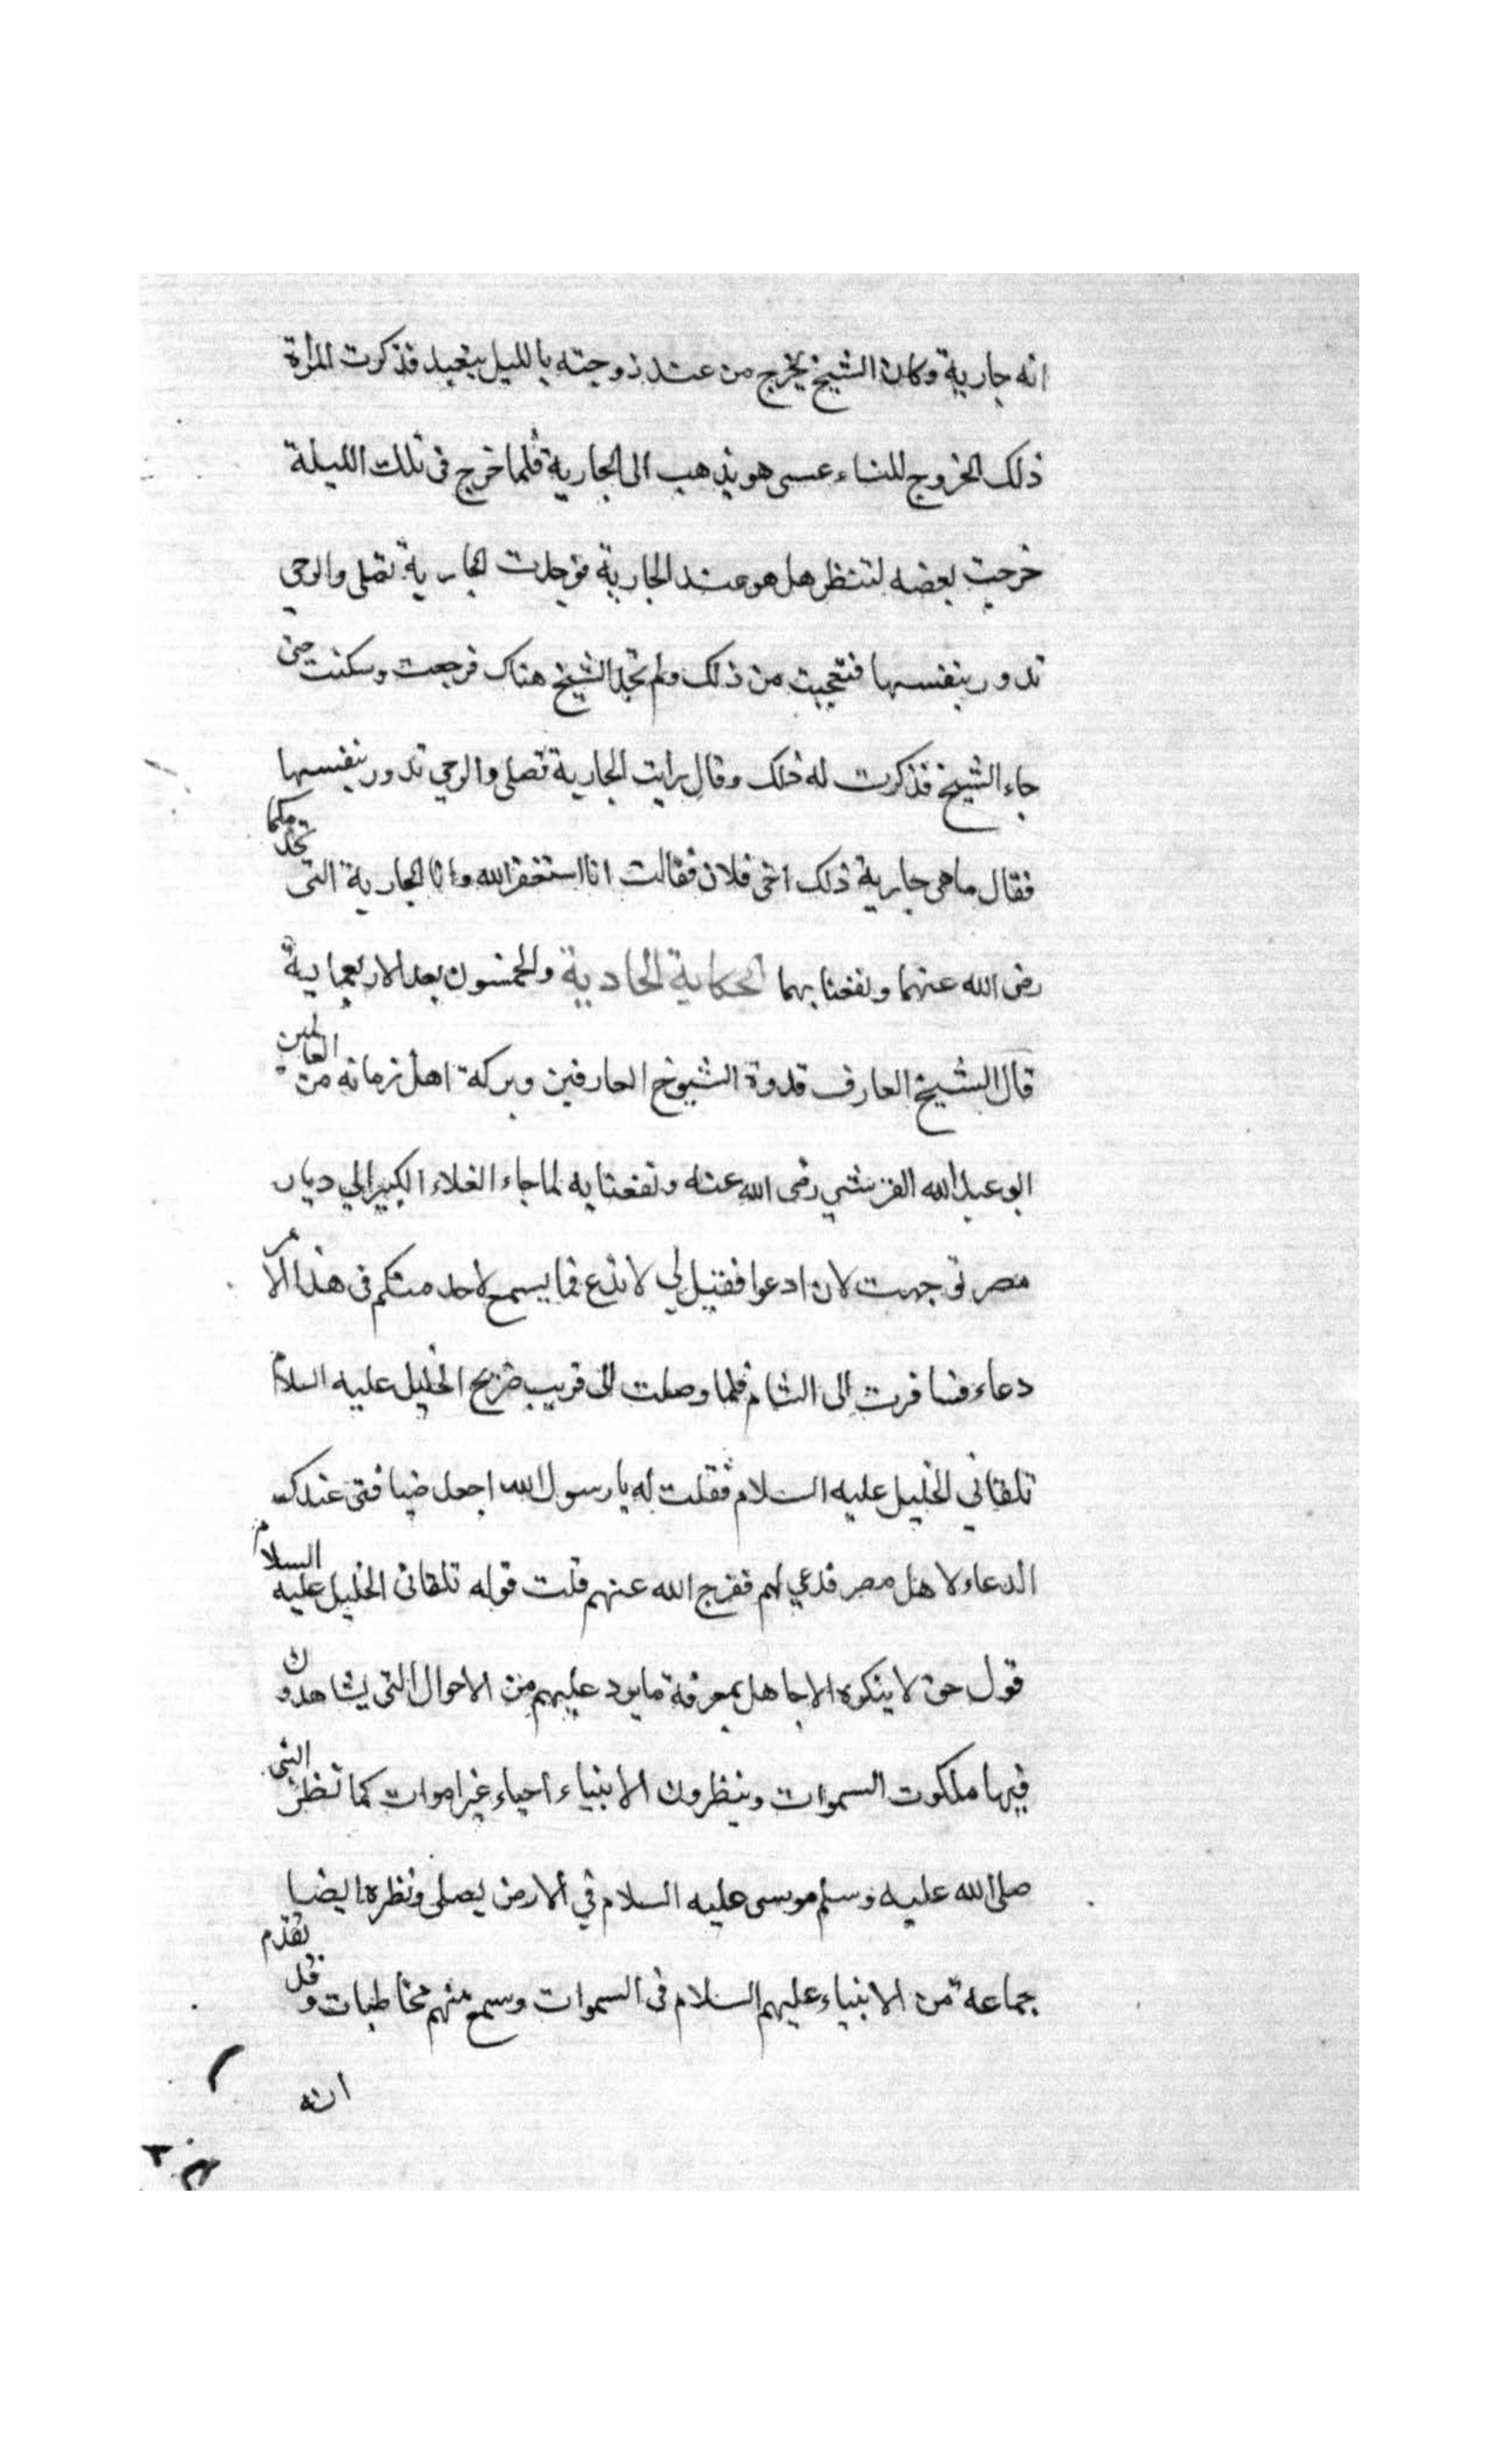 انه جارية وكان الشيخ يخرج من عند زوجته بالليل يتعبد فذكرت المرأة
ذلك الخروج للنساء عسى هو يذهب الى الجارية فلما خرج فى تلك الليلة
خرجت بعضه لتنظر هل هو عند الجارية فوجدت الجارية تصلى والرحى
تدور بنفسها فتعجبت من ذلك ولم تجد الشيخ هناك فرجعت وسكنت حتى
جاء الشيخ فذكرت له ذلك وقال رايت الجارية تصلى والرحى تدور بنفسها
فقال ما هى جارية ذلك اخى فلان فقالت انا استغفر الله وانا الجارية التى تخدمكما
رضى الله عنهما ونفعنا بهما الحكاية الحادية والخمسون بعد الاربعماية
قال الشيخ العارف قدوة الشيوخ العارفين وبركة اهل زمانه من العالمين
ابو عبد الله القرشي رضى الله عنه ونفعنا به لما جاء الغلاء الكبير الي ديار
مصر توجهت لان ادعوا فقيل لي لا تدع فما يسمع لاحد منكم فى هذا الامر
دعاء فسافرت الى الشام فلما وصلت الى قريب ضريح الخليل عليه السلام
تلقاني الخليل عليه السلام فقلت له يا رسول الله اجعل ضيافتى عندك
الدعاء لاهل مصر فدعي لهم ففرج الله عنهم قلت قوله تلقانى الخليل عليه السلام
قول حق لا ينكره الا جاهل بمعرفة ما يرد عليهم من الاحوال التى يشاهدون
فيها ملكوت السموات وينظرون الانبياء احياء غير اموات كما نظر النبى
صلى الله عليه وسلم موسى عليه السلام في الارض يصلى ونظره ايضا
جماعة من الانبياء عليهم السلام فى السموات وسمع منهم مخاطبات وقد تقدم
انه